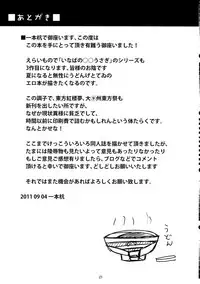 ■あとがき■
■一本杭で御座います。この度は
この本を手にとって頂き有難う御座いました!
えらいもので「いなばの○○うさぎ」のシリーズも
3作目になります。皆様のお陰です
夏になると無性にうどんげてゐの
エロ本が描きたくなるのです。
この調子で、東方紅楼夢、大⑨州東方祭も
新刊を出したい所ですが、
なぜか現状資金に貧乏でして、
ここまでけっこういろいろ同人誌を描かせて頂きましたが、
たまには陵辱物も見たいよって意見もあったりなかったり
もしこうゆうのが見たいと思われましたら、ブログなどでコメント
頂けると幸いで御座います。宜しくお願い致します。
それではまた機会があればよろしくお願い致します。
2011 09 04 一本杭
うどん